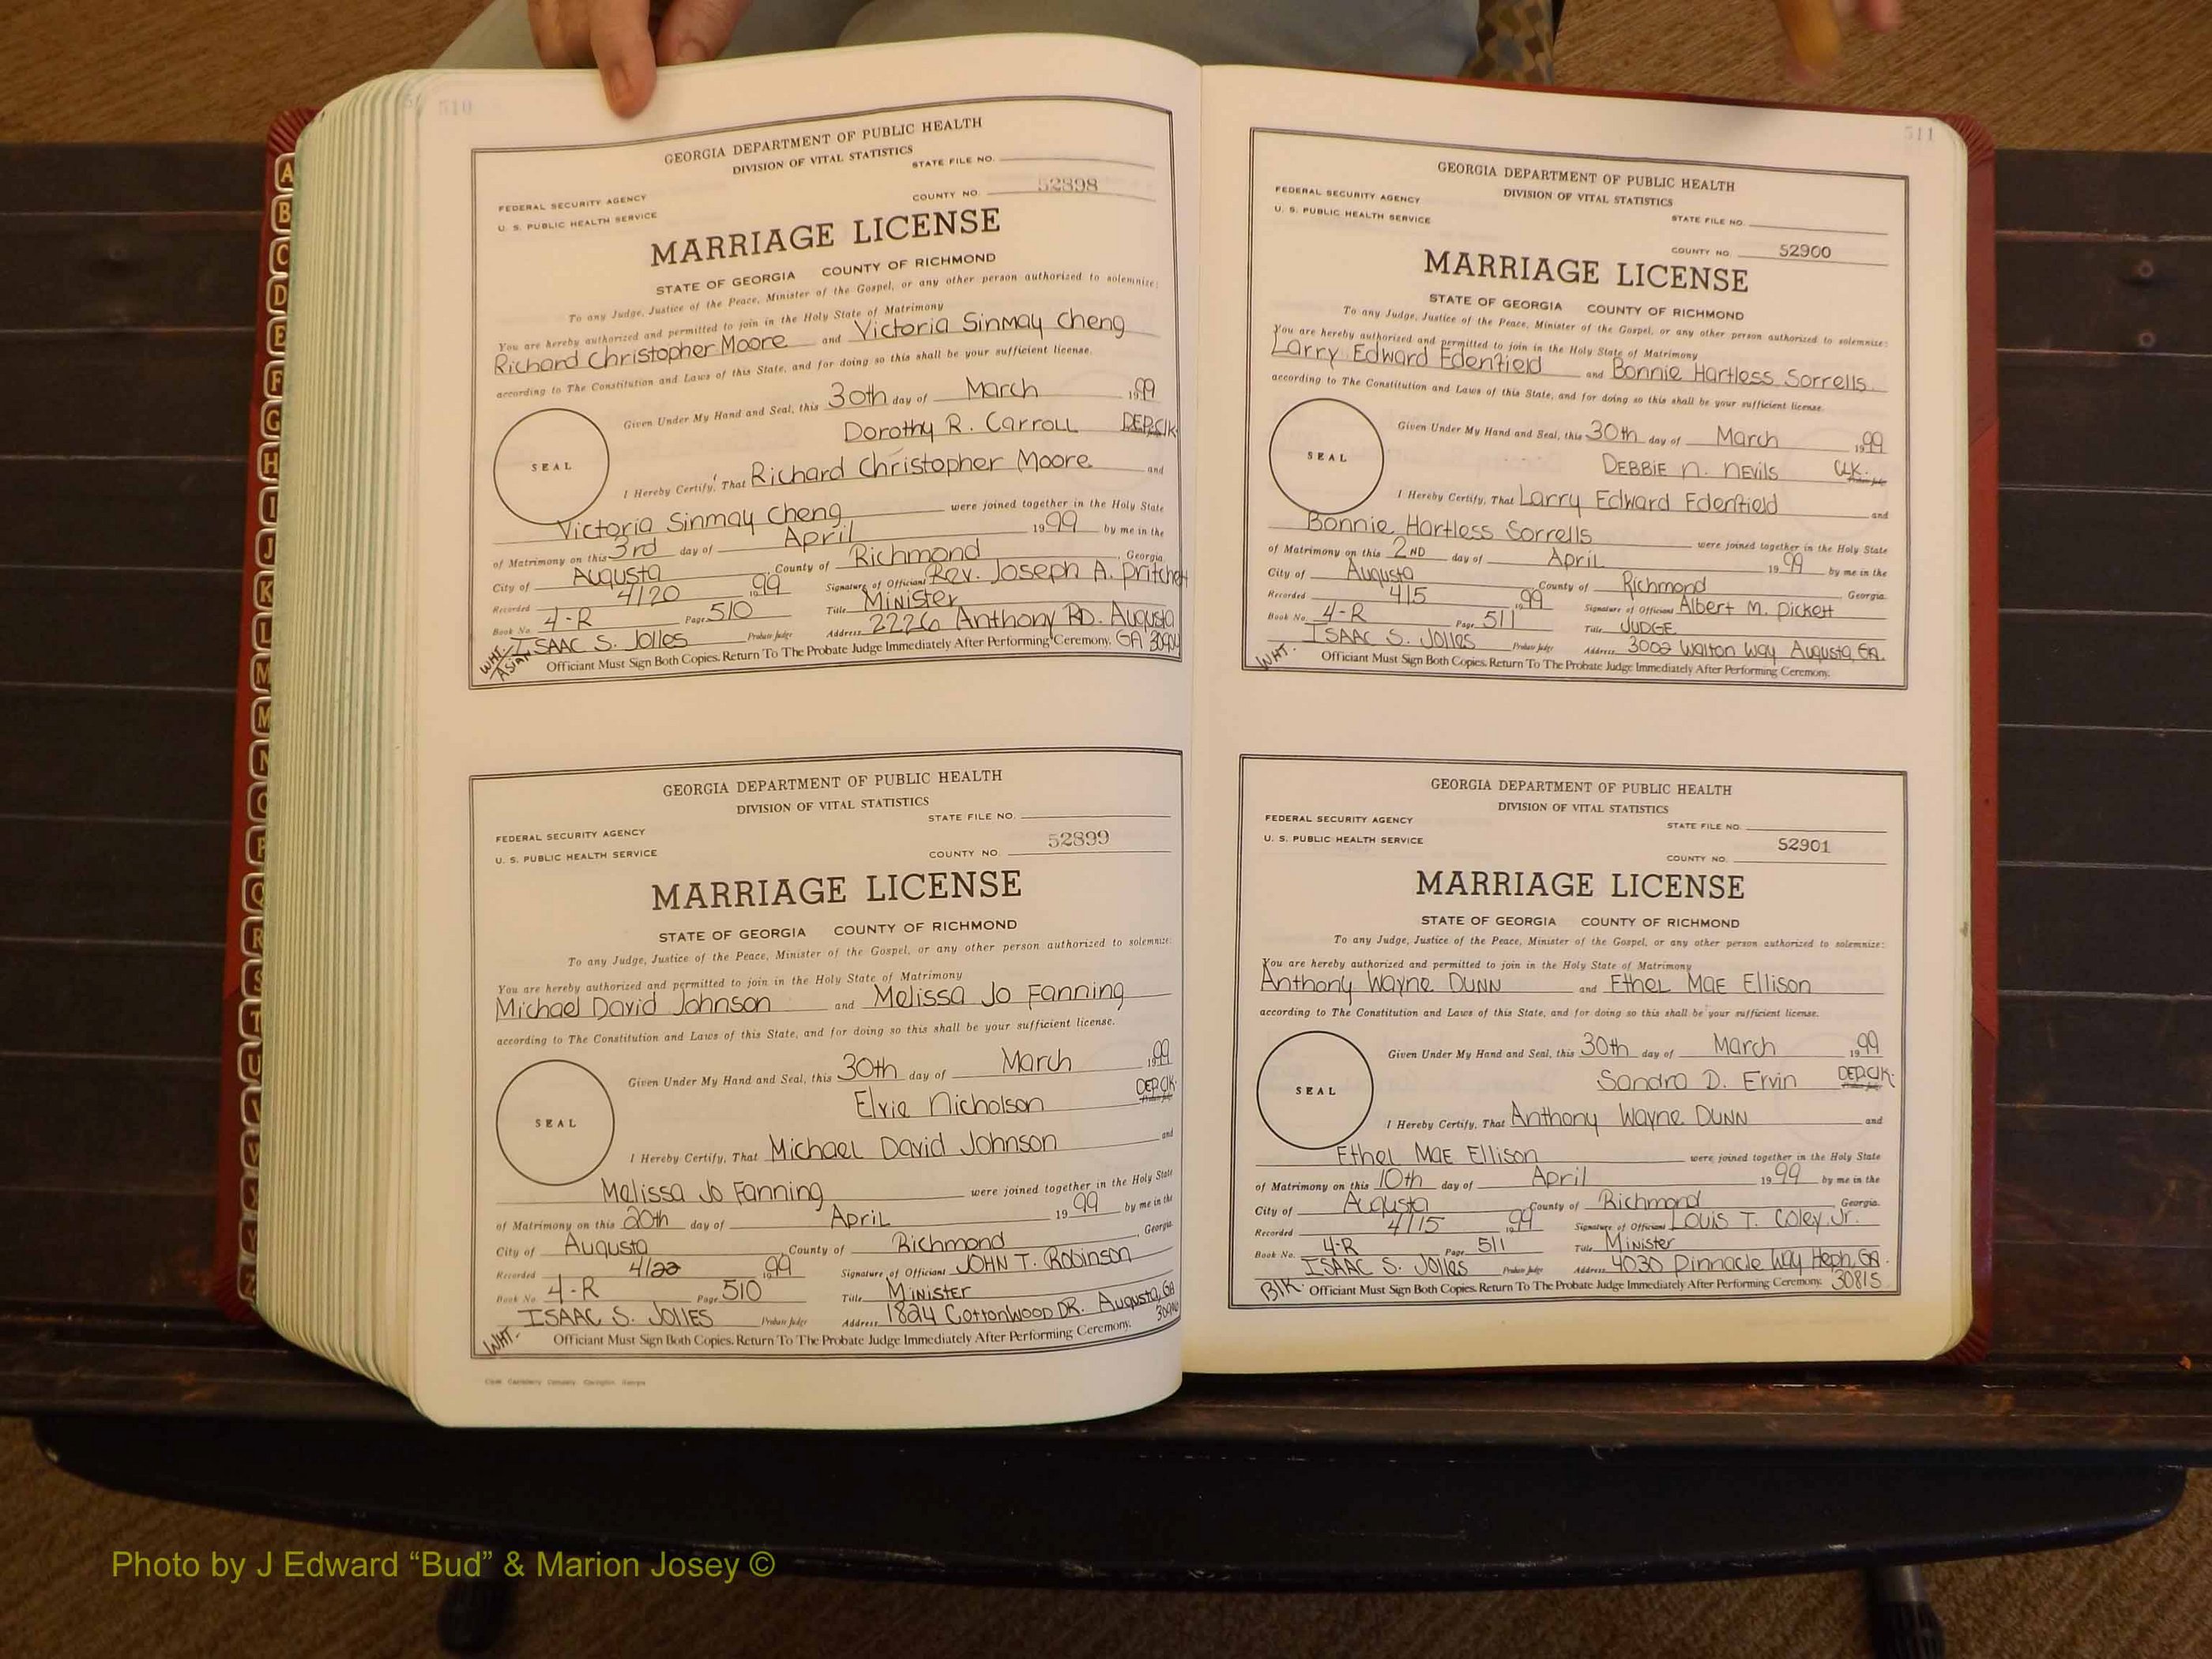 510
GEORGIA DEPARTMENT OF PUBLIC HEALTH
DIVISION OF VITAL STATISTICS
STATE FILE NO.
FEDERAL SECURITY AGENCY
COUNTY NO. 52898
U. S. PUBLIC HEALTH SERVICE
MARRIAGE LICENSE
STATE OF GEORGIA COUNTY OF RICHMOND
To any Judge, Justice of the Peace, Minister of the Gospel, or any other person authorized to solemnize:
You are hereby authorized and permitted to join in the Holy State of Matrimony
Richard Christopher Moore and Victoria Sinmay Cheng
according to The Constitution and Laws of this State, and for doing so this shall be your sufficient license.
Given Under My Hand and Seal, this 30th day of March 1999
Dorothy R. Carroll DEP.Clk.
SEAL
I Hereby Certify, That Richard Christopher Moore and
Victoria Sinmay Cheng were joined together in the Holy State
of Matrimony on this 3rd day of April 1999 by me in the
City of Augusta County of Richmond, Georgia.
Recorded 4/20 1999 Signature of Official Rev. Joseph A. Pritchett
Book No. 4-R Page 510 Title Minister
ISAAC S. JOLLES Probate Judge Address 2226 Anthony RD. Augusta
GA 30904
WHT./ASIAN
Officiant Must Sign Both Copies. Return To The Probate Judge Immediately After Performing Ceremony.
GEORGIA DEPARTMENT OF PUBLIC HEALTH
DIVISION OF VITAL STATISTICS
STATE FILE NO.
FEDERAL SECURITY AGENCY
U. S. PUBLIC HEALTH SERVICE
COUNTY NO. 52899
MARRIAGE LICENSE
STATE OF GEORGIA COUNTY OF RICHMOND
To any Judge, Justice of the Peace, Minister of the Gospel, or any other person authorized to solemnize:
You are hereby authorized and permitted to join in the Holy State of Matrimony
Michael David Johnson and Melissa Jo Fanning
according to The Constitution and Laws of this State, and for doing so this shall be your sufficient license.
Given Under My Hand and Seal, this 30th day of March 1999
Elvie Nicholson DEP.Clk.
SEAL
I Hereby Certify, That Michael David Johnson and
Melissa Jo Fanning were joined together in the Holy State
of Matrimony on this 20th day of April 1999 by me in the
City of Augusta County of Richmond, Georgia.
Recorded 4/22 1999 Signature of Official JOHN T. Robinson
Book No. 4-R Page 510 Title Minister
ISAAC S. JOLLES Probate Judge Address 1824 Cottonwood DR. Augusta, GA
WHT. Officiant Must Sign Both Copies. Return To The Probate Judge Immediately After Performing Ceremony.
511
GEORGIA DEPARTMENT OF PUBLIC HEALTH
DIVISION OF VITAL STATISTICS
FEDERAL SECURITY AGENCY
U. S. PUBLIC HEALTH SERVICE
STATE FILE NO.
COUNTY NO. 52900
MARRIAGE LICENSE
STATE OF GEORGIA COUNTY OF RICHMOND
To any Judge, Justice of the Peace, Minister of the Gospel, or any other person authorized to solemnize:
You are hereby authorized and permitted to join in the Holy State of Matrimony
Larry Edward Edenfield and Bonnie Hartless Sorrells
according to The Constitution and Laws of this State, and for doing so this shall be your sufficient license.
Given Under My Hand and Seal, this 30th day of March 1999
DEBBIE N. NEVILS CLK.
SEAL
I Hereby Certify, That Larry Edward Edenfield and
Bonnie Hartless Sorrells were joined together in the Holy State
of Matrimony on this 2ND day of April 1999 by me in the
City of Augusta County of Richmond, Georgia.
Recorded 4/5 1999 Signature of Official Albert M. Pickett
Book No. 4-R Page 511 Title JUDGE
ISAAC S. JOLLES Probate Judge Address 3002 Walton Way Augusta, GA.
WHT. Officiant Must Sign Both Copies. Return To The Probate Judge Immediately After Performing Ceremony.
GEORGIA DEPARTMENT OF PUBLIC HEALTH
DIVISION OF VITAL STATISTICS
FEDERAL SECURITY AGENCY
STATE FILE NO.
U. S. PUBLIC HEALTH SERVICE
52901
COUNTY NO.
MARRIAGE LICENSE
STATE OF GEORGIA COUNTY OF RICHMOND
To any Judge, Justice of the Peace, Minister of the Gospel, or any other person authorized to solemnize:
You are hereby authorized and permitted to join in the Holy State of Matrimony
Anthony Wayne DUNN and EtheL MaE Ellison
according to The Constitution and Laws of this State, and for doing so this shall be your sufficient license.
Given Under My Hand and Seal, this 30th day of March 1999
Sandra D. Ervin DEP.Clk.
SEAL
I Hereby Certify, That Anthony Wayne DUNN and
Ethel MaE Ellison were joined together in the Holy State
of Matrimony on this 10th day of April 1999 by me in the
City of Augusta County of Richmond, Georgia.
Recorded 4/15 1999 Signature of Official Louis T. Coley, Jr.
Book No. 4-R Page 511 Title Minister
ISAAC S. JOLLES Probate Judge Address 4030 Pinnacle Way Heph, GA.
Blk. Officiant Must Sign Both Copies. Return To The Probate Judge Immediately After Performing Ceremony. 30815
A
B
C
D
E
F
G
H
I
J
K
L
M
M
N
O
P
Q
R
S
T
U
V
W
X
Y
Z
Photo by J Edward “Bud” & Marion Josey ©